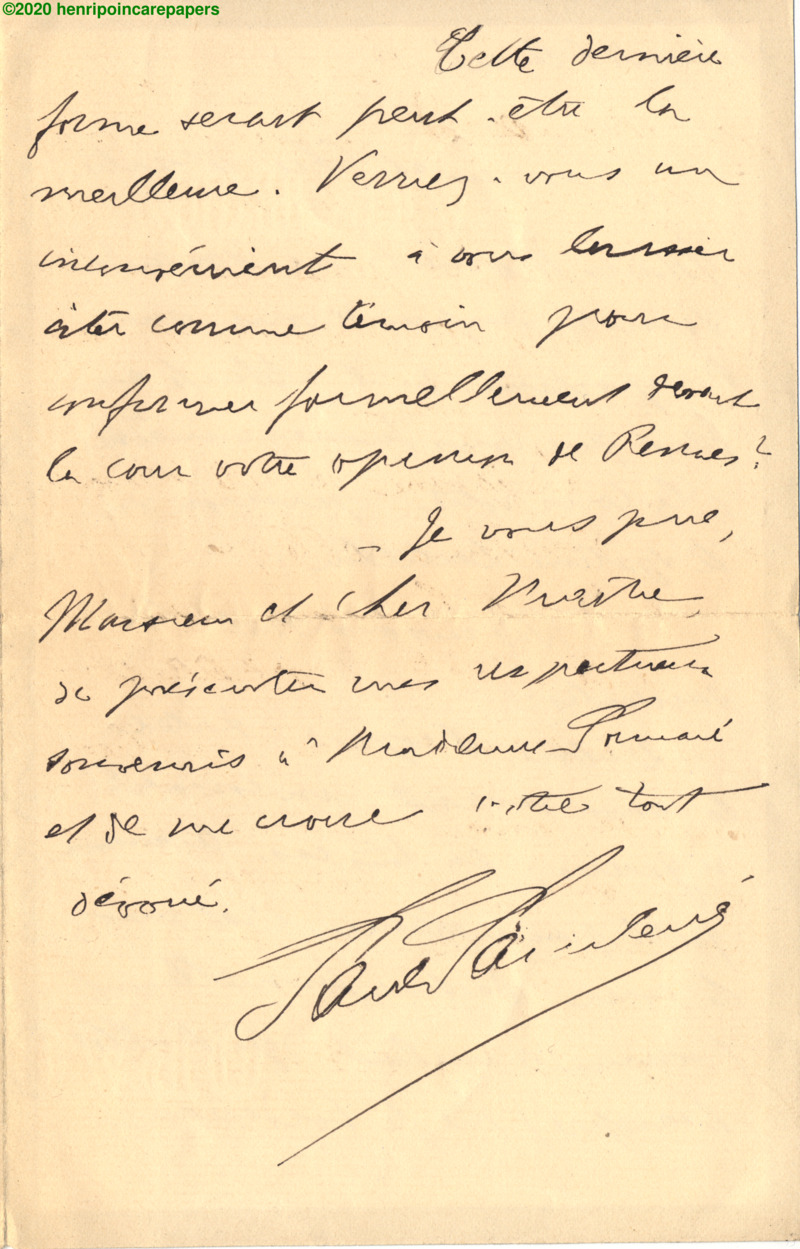 ©2020 henripoincarepapers
Cette dernière
forme serait peut-être la
meilleure. Verriez-vous un
inconvénient à vous laisser
citer comme témoin pour
confirmer formellement devant
la cour votre opinion de Rennes?
– Je vous prie,
Monsieur et cher Maître,
de présenter mes respectueux
souvenirs à Madame Poincaré
et de me croire votre tout
dévoué.
Paul Painlevé